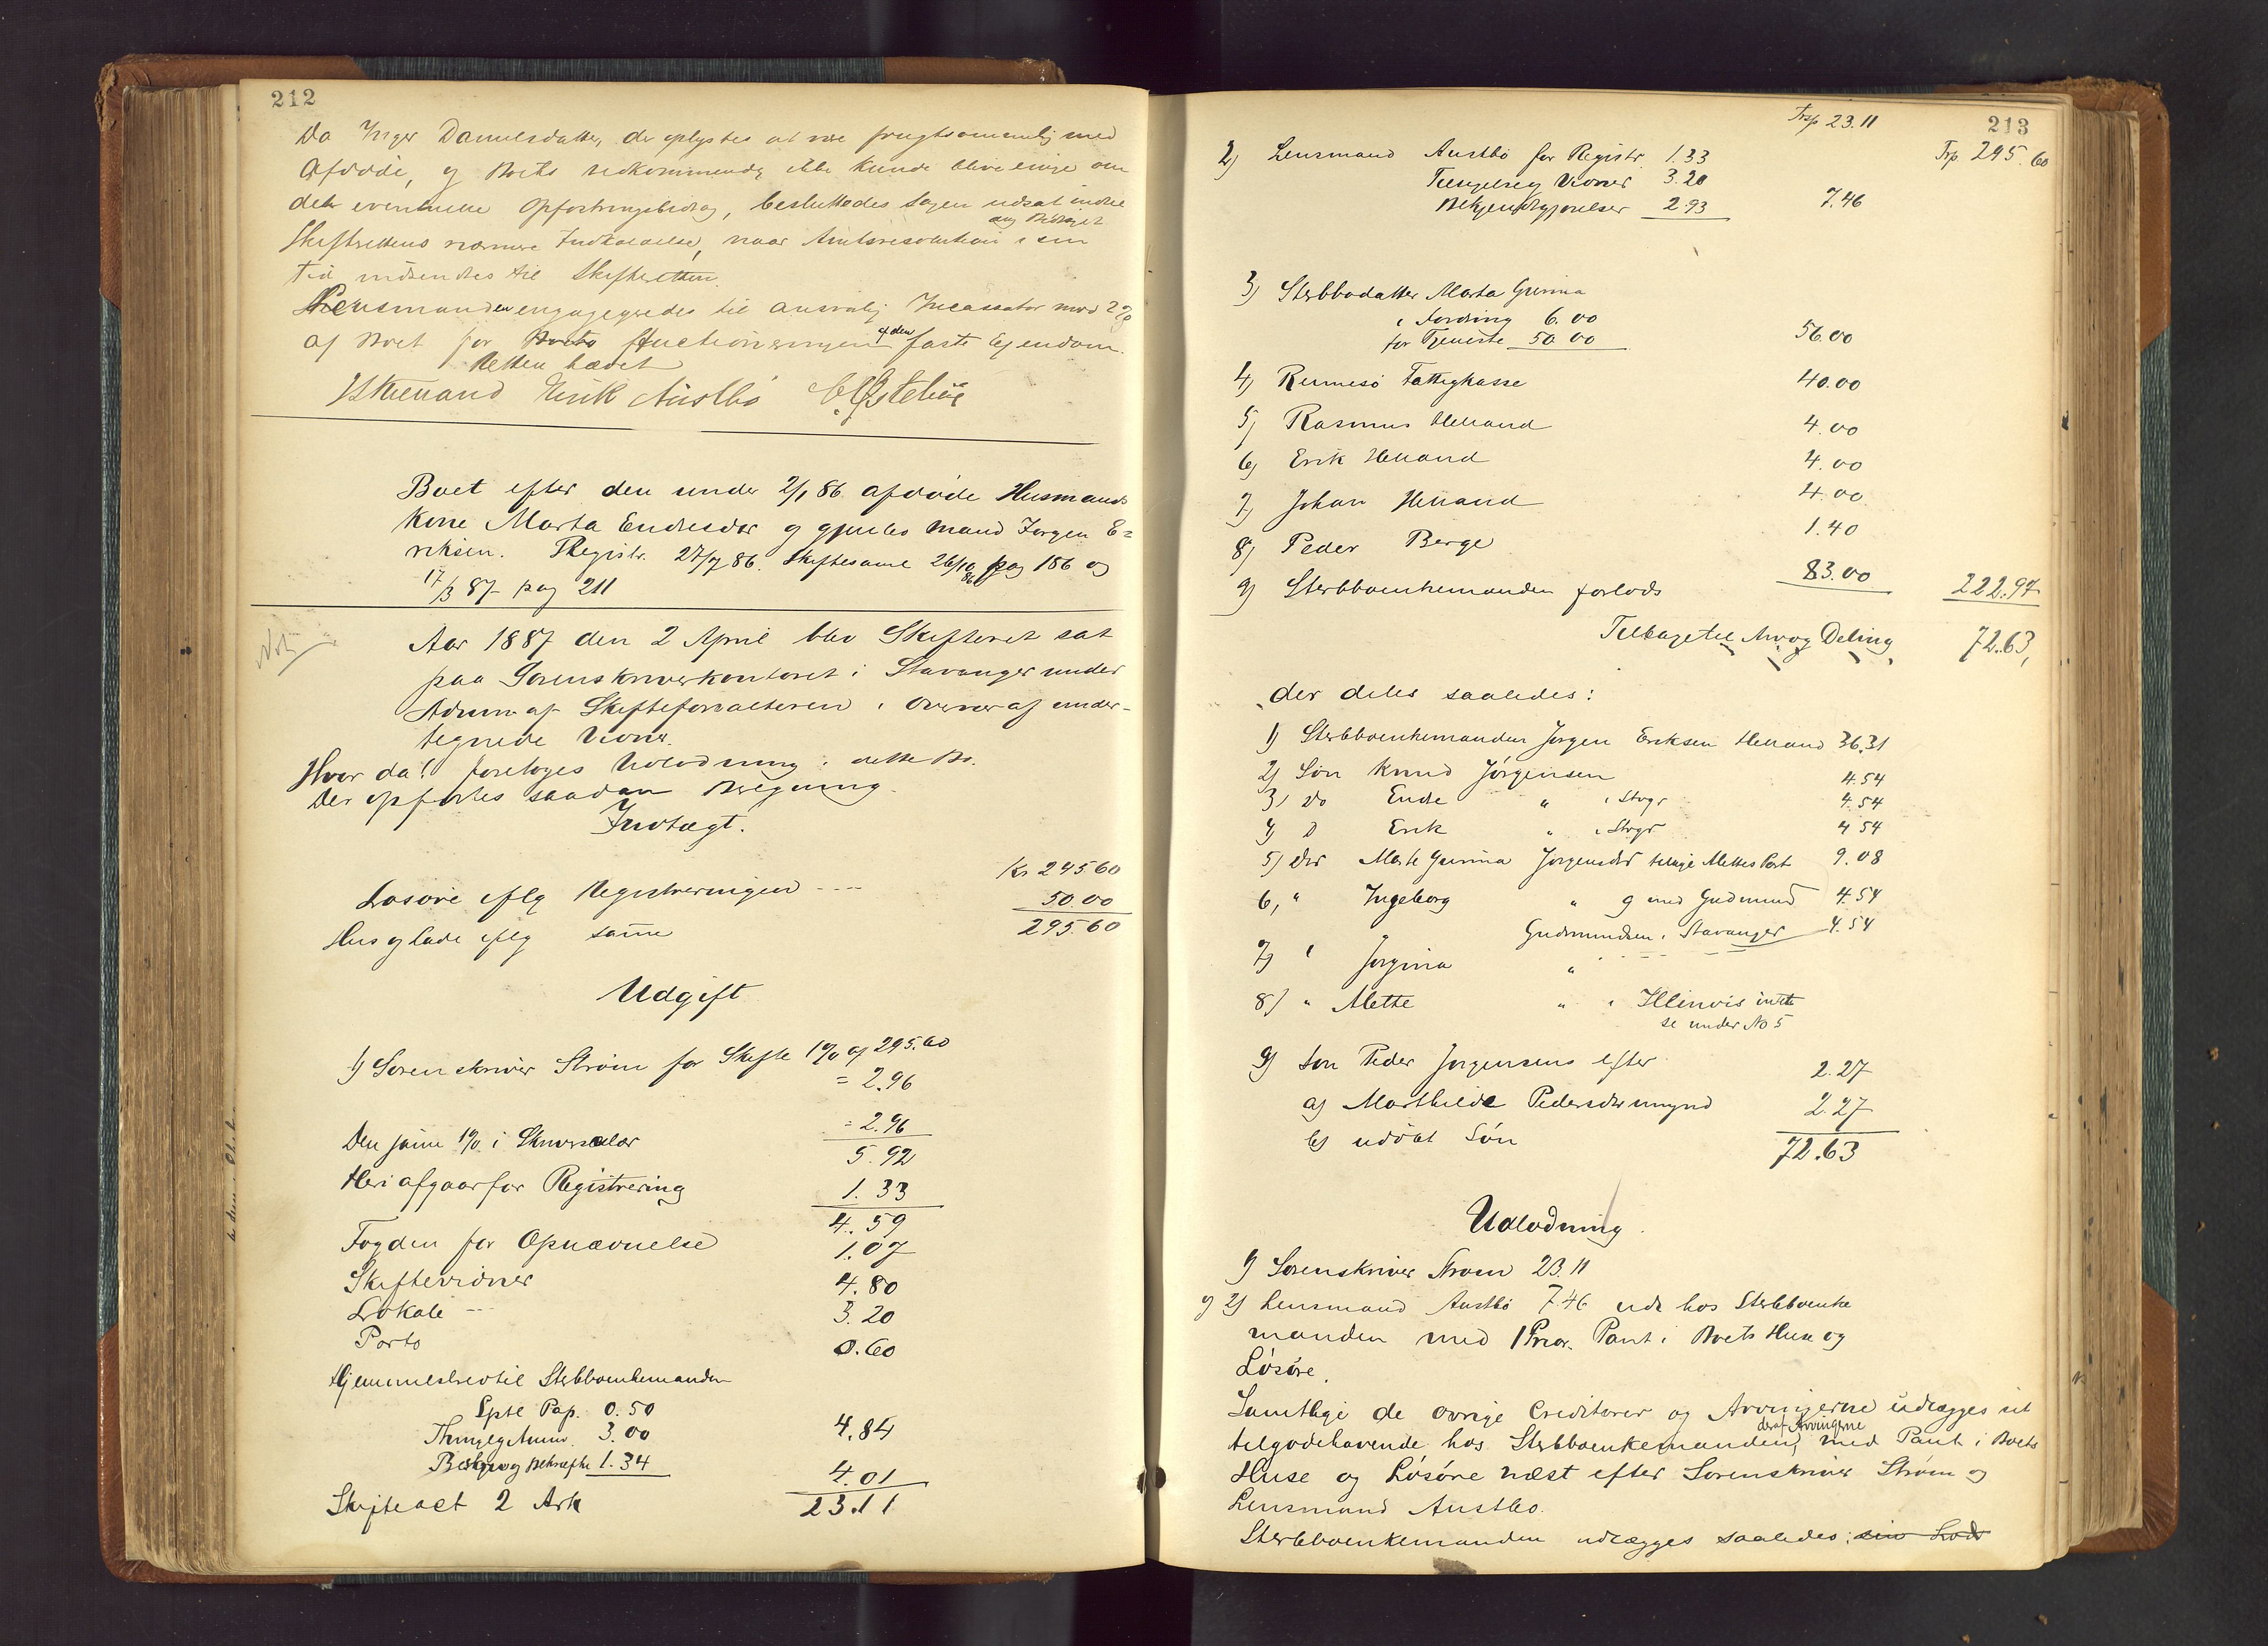 212
Da Inger Danielsdatter, der oplystes at være frugtsommelig med
Afdøde, og Boets vedkommende ikke kunde blive enige om
det eventuelle Opfostringsbidrag, besluttedes Sagen udsat indtil
ang Bidraget
Skifterettens nærmere Indkaldelse, naar Amtsresolution i sin
Tid indsendes til Skifteretten.
Lensmanden engageredes til ansvarlig Incassator mod 2%
af Boet for Boets Auctioneringen af den faste Ejendom.
Retten hævet
Erik Austbø
Boet efter den under 2/1 86 afdøde Husmands
Kone Marta Endresdtr og gjenlev Mand Jørgen E=
riksen. Registr. 27/7 86. Skiftesaml 26/10 86 pag 186 og
17/3 87 pag 211
Aar 1887 den 2 April blev Skifteret sat
paa Sorenskriverkontoret i Stavanger under
Adm. af Skifteforvalteren i Overvær af under-
tegnede Vidner.
Hvor da! foretoges Udlodning i dette Bo.
Der opførtes saadan Beregning.
Indtægt.
Løsøre iflg Registreringen ---- Kr 245.60
Hus og Lade iflg samme 50.00
295.60
Udgift
1) Sorenskriver Strøm for Skifte 1% af 295.60
= 2.96
Den samme 1% i Skriversalær = 2.96
5.92
Heri afgaar for Registrering 1.33
4.59
Fogden for Opnævnelse 1.07
Skiftevidner 4.80
Lokale --- 3.20
Porto 0.60
Hjemmelsbrev til Sterbboenkemanden
Splt Pap. 0.50
Thinglg Annm. 3.00 4.84
Beskr og Bekræft 1.34
Skifteact 2 Ark 4.01
23.11
213
Trsp 23.11
Trsp 295.60
2) Lensmand Austbø for Registr. 1.33
Tilsigelse af Vidner 3.20
Bekjendtgjørelser 2.93 7.46
3) Sterbbodatter Marta Gurina
i Fordring 6.00
for Tjeneste 50.00 56.00
4) Rennesø Fattigkasse 40.00
5) Rasmus Helland 4.00
6) Erik Helland 4.00
7) Johan Helland 4.00
8) Peder Berge 1.40
9) Sterbboenkemanden forlods 83.00 222.97
Tilbage til Arv og Deling 72.63,
der deles saaledes:
1) Sterbboenkemanden Jørgen Eriksen Helland 36.31
2) Søn Knud Jørgensen 4.54
3) Do Endre " i Stvgr 4.54
4) D Erik " i Stvgr 4.54
5) Dtr Marta Gurina Jørgensdtr tillige Mettes Part 9.08
6) " Ingeborg " g med Gudmund 4.54
Gudmundsen i Stavanger 4.54
7) " Jørgina "
8) " Mette " i Illinois
se under No 5
9) Søn Peder Jørgensens efter
a) Marthilde Pedersdtr umynd 2.27
b) udøbt Søn 2.27
72.63
Udlodning.
1) Sorenskriver Strøm 23.11
og 2) Lensmand Austbø 7.46 udl hos Sterbboenke
manden med 1 Prior. Pant i Boets Huse og
Løsøre.
Samtlige de øvrige Creditorer og Arvingerne udlægges sit
deraf Arvingerne
tilgodehavende hos Sterbboenkemanden, med Pant i Boets
Huse og Løsøre næst efter Sorenskriver Strøm og
Lensmand Austbø.
Sterbboenkemanden udlægges saaledes: sin Lod